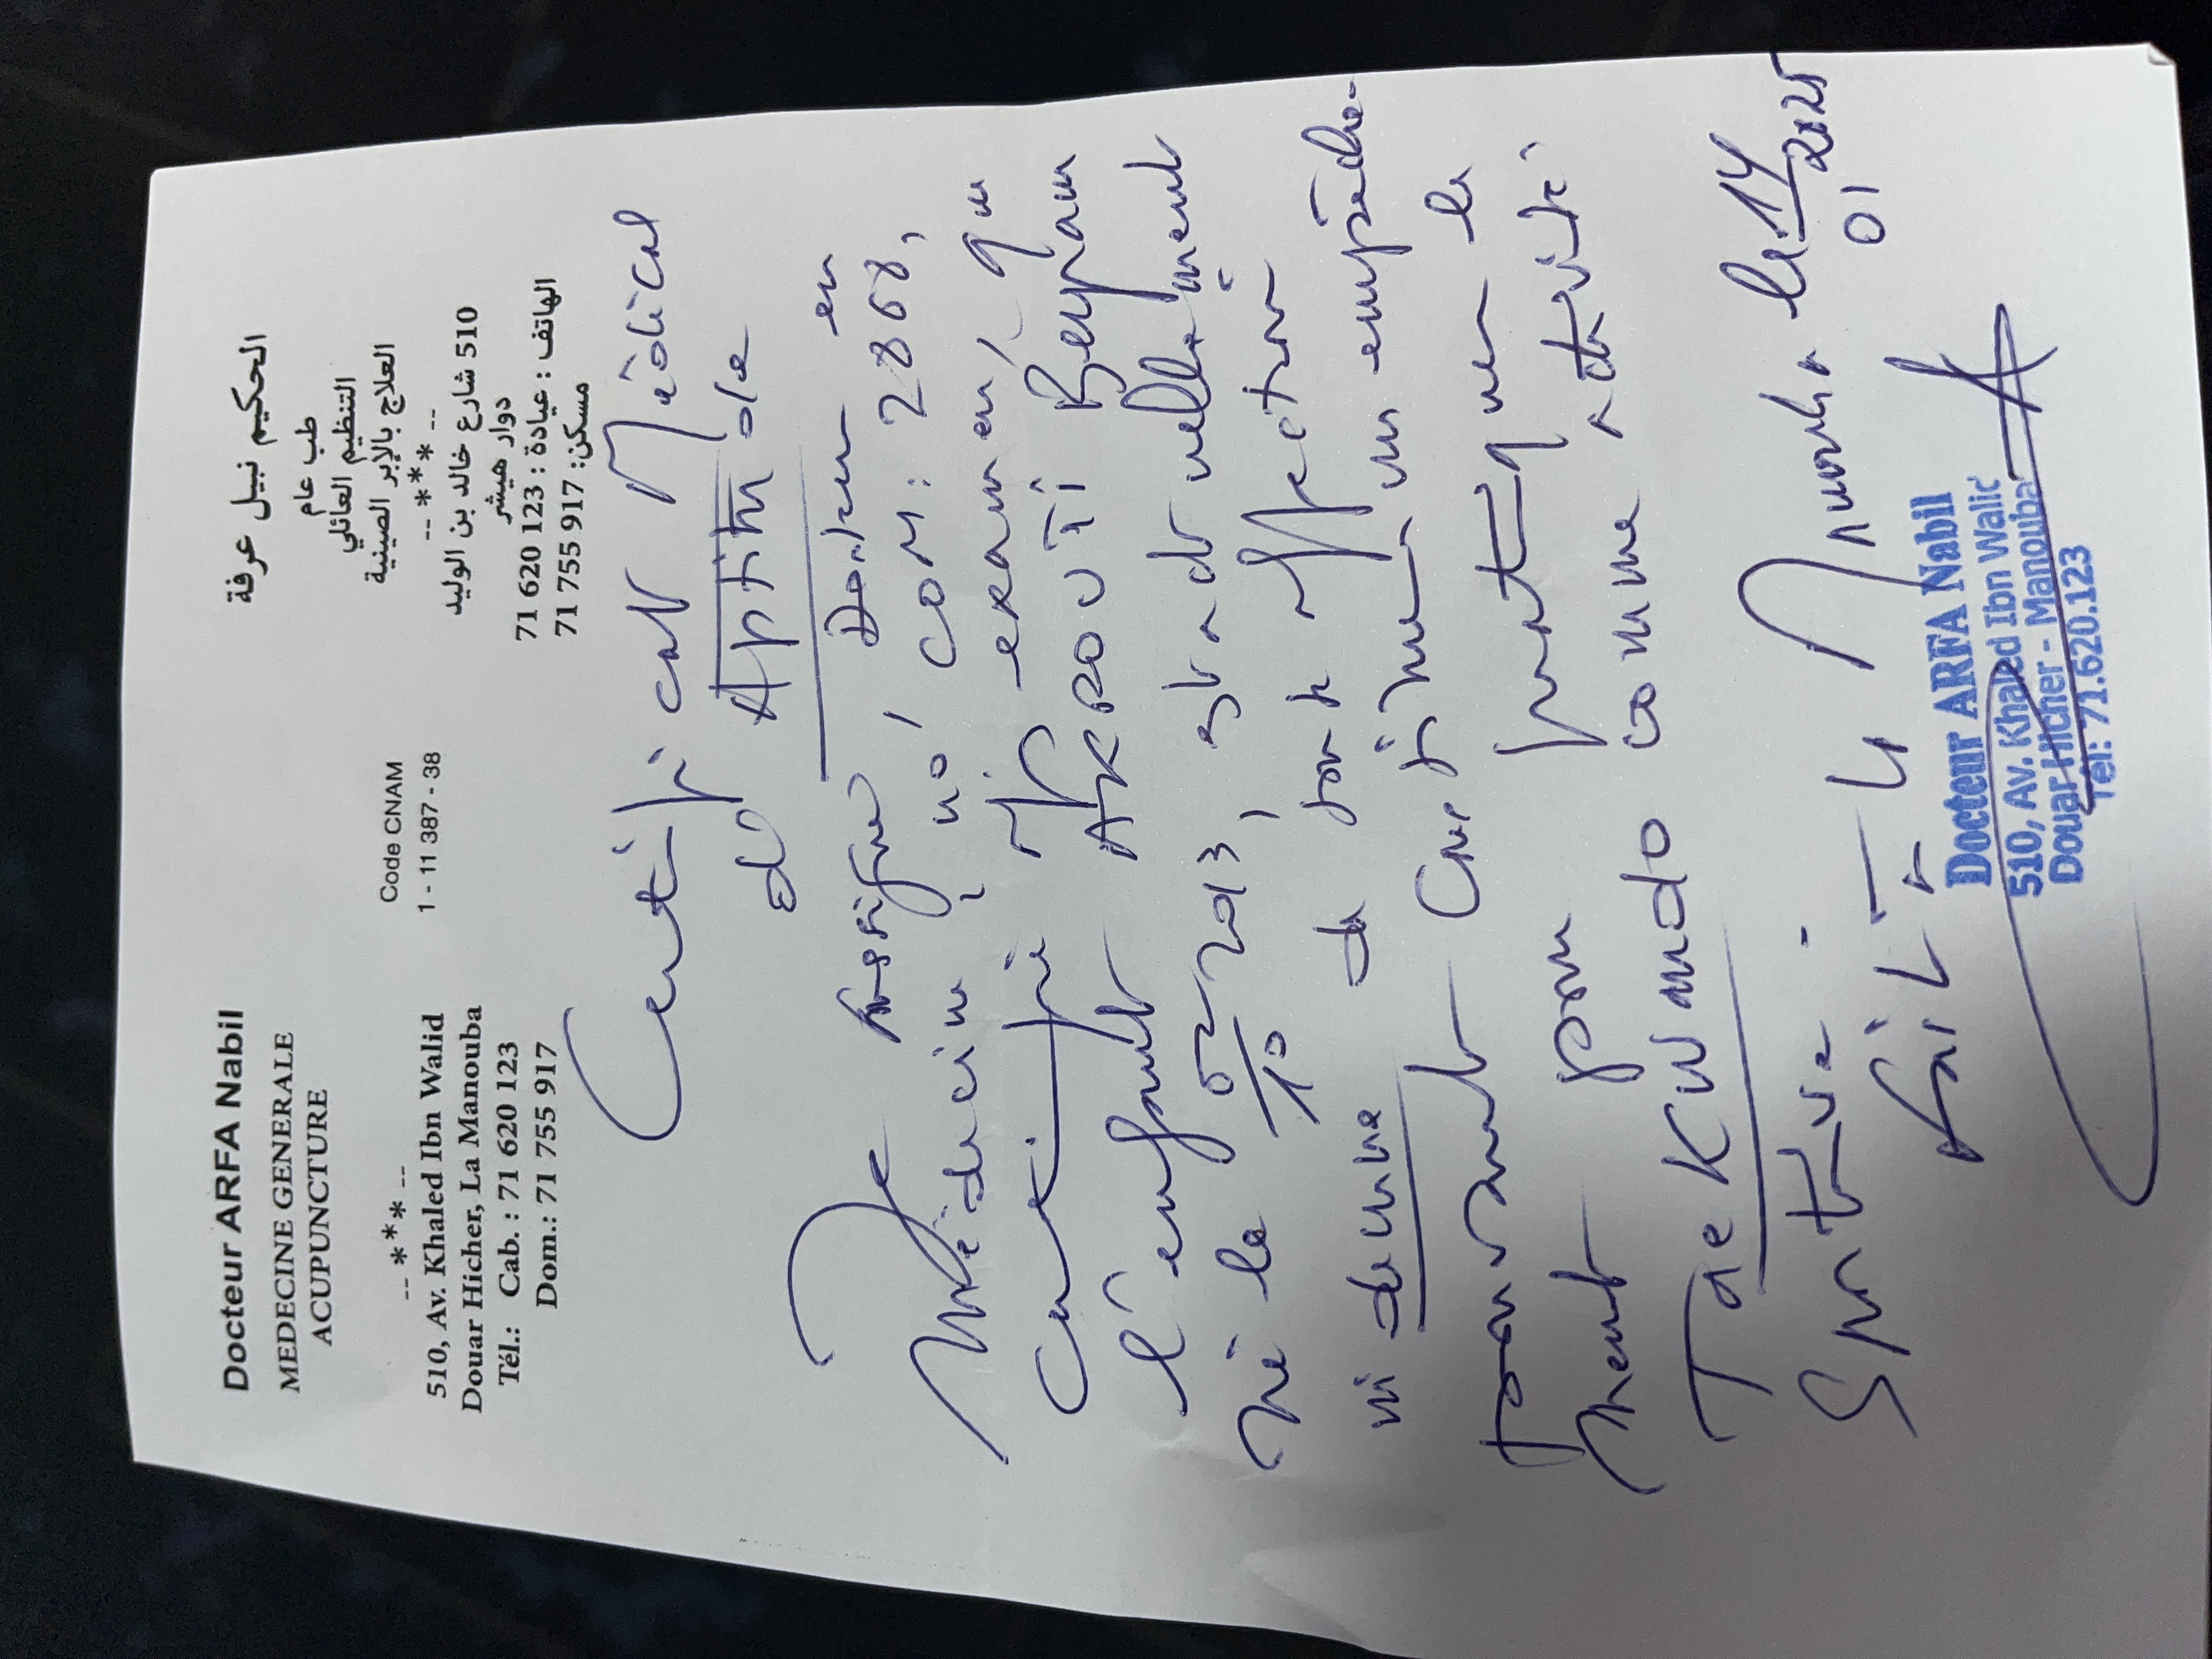 Docteur ARFA Nabil
MEDECINE GENERALE
ACUPUNCTURE
-- *** --
510, Av. Khaled Ibn Walid
Douar Hicher, La Manouba
Tél.: Cab. : 71 620 123
Dom.: 71 755 917
Code CNAM
1 - 11 387 - 38
الحكيم نبيل عرفة
طب عام
التنظيم العائلي
العلاج بالإبر الصينية
-- *** --
510 شارع خالد بن الوليد
دوار هيشر
الهاتف : عيادة : 123 620 71
مسكن: 917 755 71
Certificat Médical
d'Aptitude
Je soussigné Docteur en
Médecine, no, COM: 2868,
certifie avoir examiné, que
l'enfant AKROUTI Beyram
né le 02/10/2013, est actuellement
indemne de toute affection
pouvant constituer un empêche-
ment pour pratiquer le
TaeKwando comme activité
Sportive.
Fait à Manouba le 14/01/2025
Docteur ARFA Nabil
510, Av. Khaled Ibn Walid
Douar Hicher - Manouba
Tél: 71.620.123